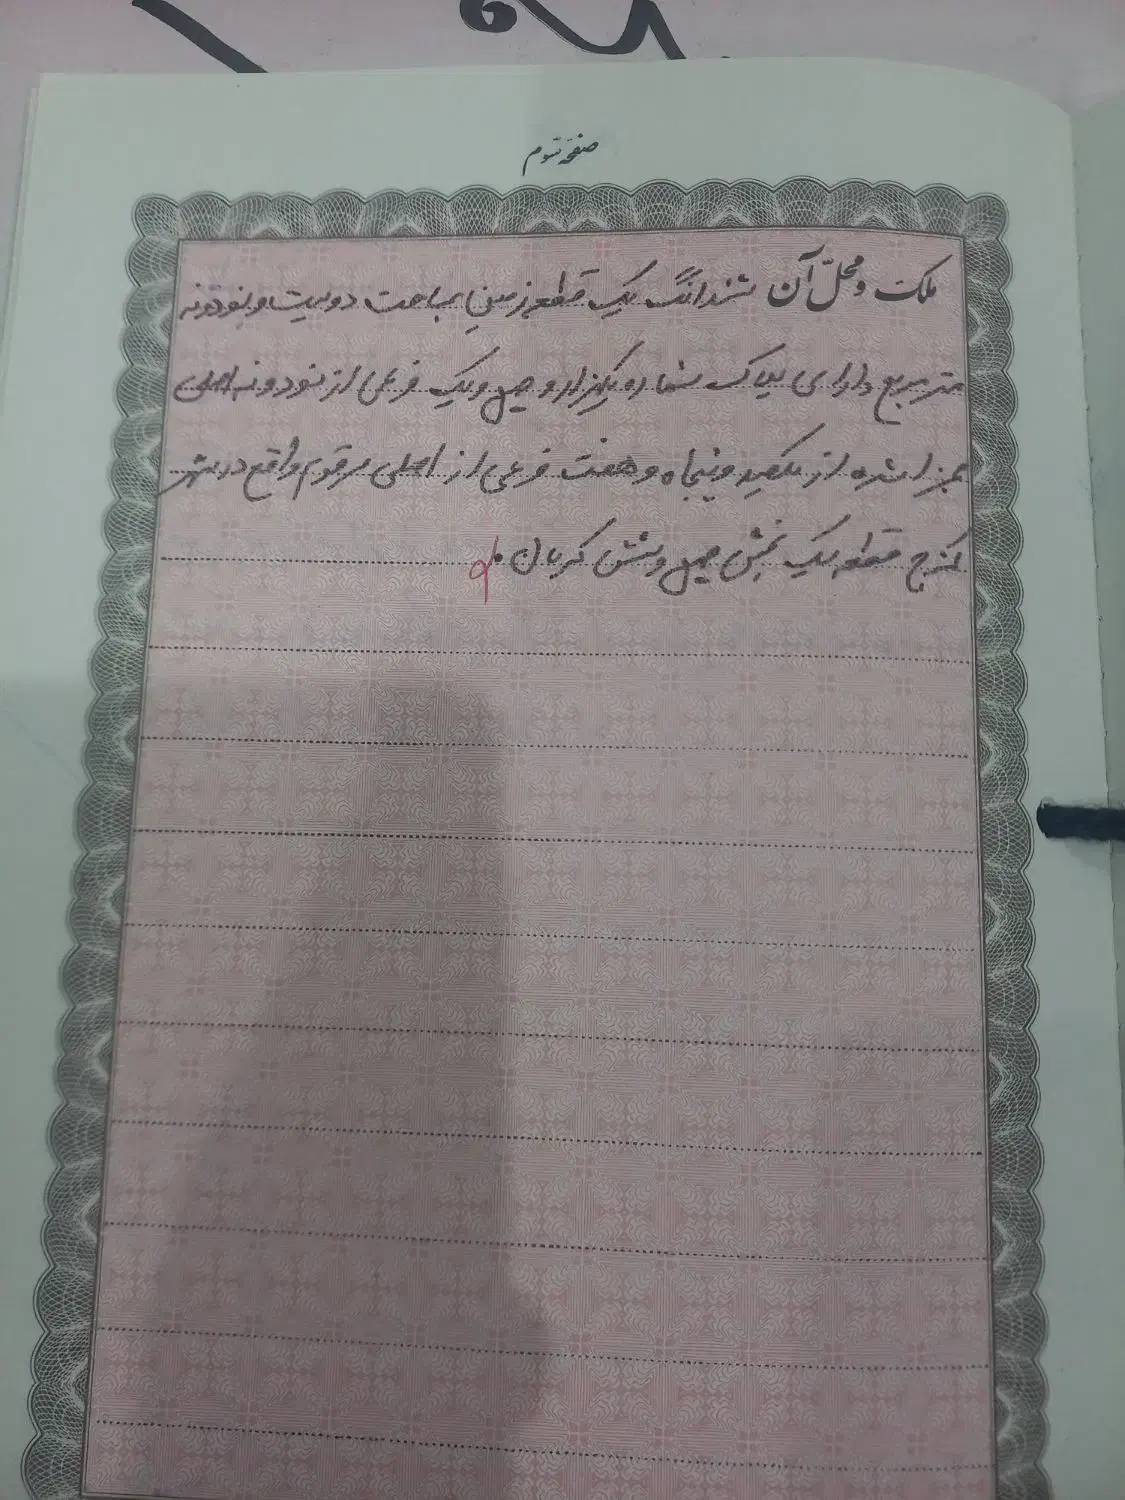 صفحه سوم
ملک و محلّ آن ششدانگ یک قطعه زمین بمساحت دویست و نود و نه
متر مربع دارای پلاک شماره یکهزار و چهل و یک فرعی از نود و نه اصلی
مجزا شده از یکصد و پنجاه و هفت فرعی از اصلی مرقوم واقع در شهر
کرج قطعه یک بخش چهل و شش